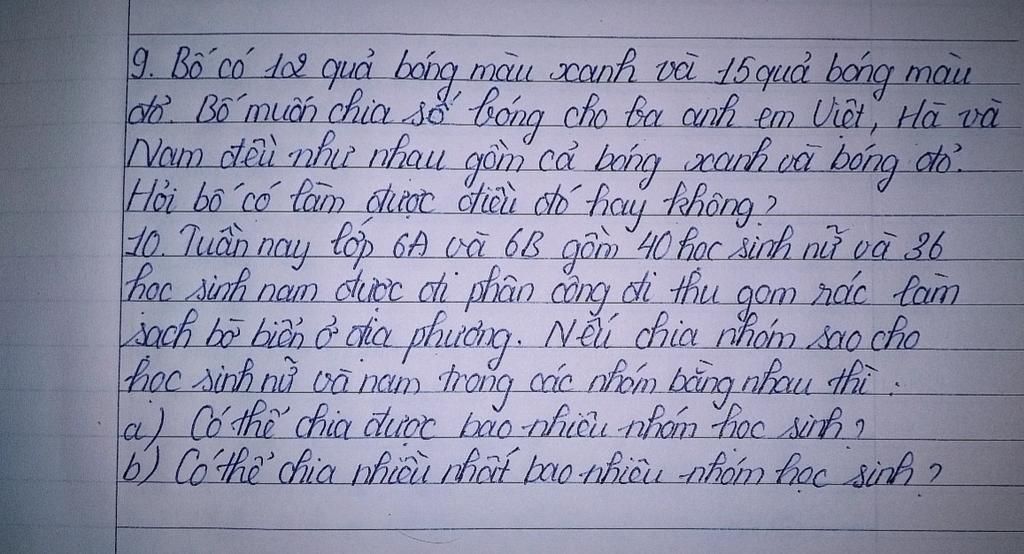 9. Bố có 12 quả bóng màu xanh và 15 quả bóng màu
đỏ. Bố muốn chia số bóng cho ba anh em Việt, Hà và
Nam đều như nhau gồm cả bóng xanh và bóng đỏ.
Hỏi bố có làm được điều đó hay không?
10. Tuần nay lớp 6A và 6B gồm 40 học sinh nữ và 36
học sinh nam được đi phân công đi thu gom rác làm
sạch bờ biển ở địa phương. Nếu chia nhóm sao cho
học sinh nữ và nam trong các nhóm bằng nhau thì:
a) Có thể chia được bao nhiêu nhóm học sinh?
b) Có thể chia nhiều nhất bao nhiêu nhóm học sinh?